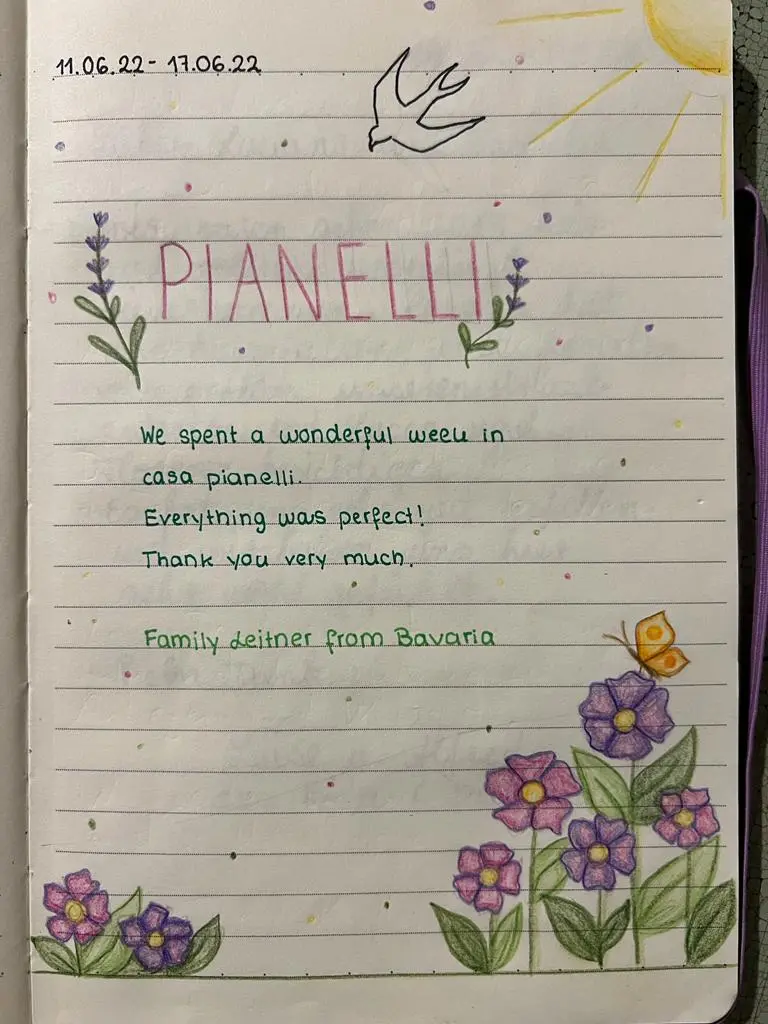 11.06.22 - 17.06.22
PIANELLI
We spent a wonderful week in
casa pianelli.
Everything was perfect!
Thank you very much.
Family Leitner from Bavaria